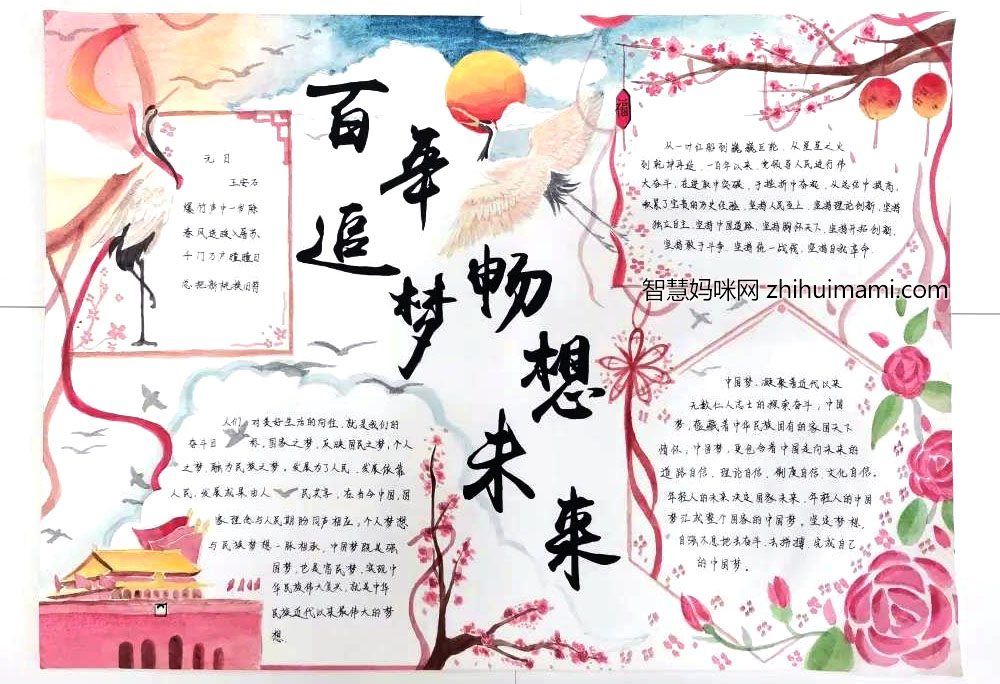 百年追梦
畅想未来
福
元日
王安石
爆竹声中一岁除
春风送暖入屠苏
千门万户曈曈日
总把新桃换旧符
从一叶红船到巍巍巨轮，从星星之火
到乾坤再造，一百年以来，党领导人民进行伟
大奋斗，在进取中突破，于挫折中奋起，从总结中提高，
积累了宝贵的历史经验，坚持人民至上，坚持理论创新，坚持
独立自主，坚持中国道路，坚持胸怀天下，坚持开拓创新，
坚持敢于斗争，坚持统一战线，坚持自我革命.
智慧妈咪网 zhihuimami.com
人们对美好生活的向往，就是我们的
奋斗目标。国家之梦，反映国民之梦，个人
之梦，融为民族之梦。发展为了人民，发展依靠
人民，发展成果由人民共享，在当今中国，国
家理念与人民期盼同声相应，个人梦想
与民族梦想一脉相承，中国梦既是强
国梦，也是富民梦，实现中
华民族伟大复兴，就是中华
民族近代以来最伟大的梦
想.
中国梦，凝聚着近代以来
无数仁人志士的探索奋斗，中国
梦，蕴藏着中华民族固有的家国天下
情怀，中国梦，更包含着中国走向未来的
道路自信，理论自信，制度自信，文化自信。
年轻人的未来决定国家未来，年轻人的中国
梦汇成整个国家的中国梦，坚定梦想，
自强不息地去奋斗、去拼搏，完成自己
的中国梦。